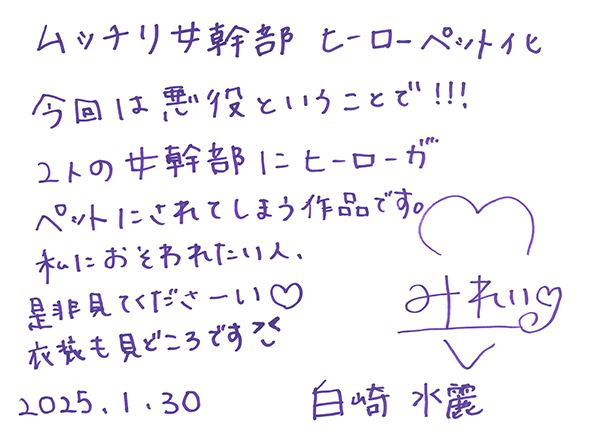 ムッチリ女幹部 ヒーローペット化
今回は悪役ということで!!!
2人の女幹部にヒーローが
ペットにされてしまう作品です。
私におそわれたい人、
是非見てくださーい♡
衣装も見どころです
みれい
2025.1.30
白崎 水麗